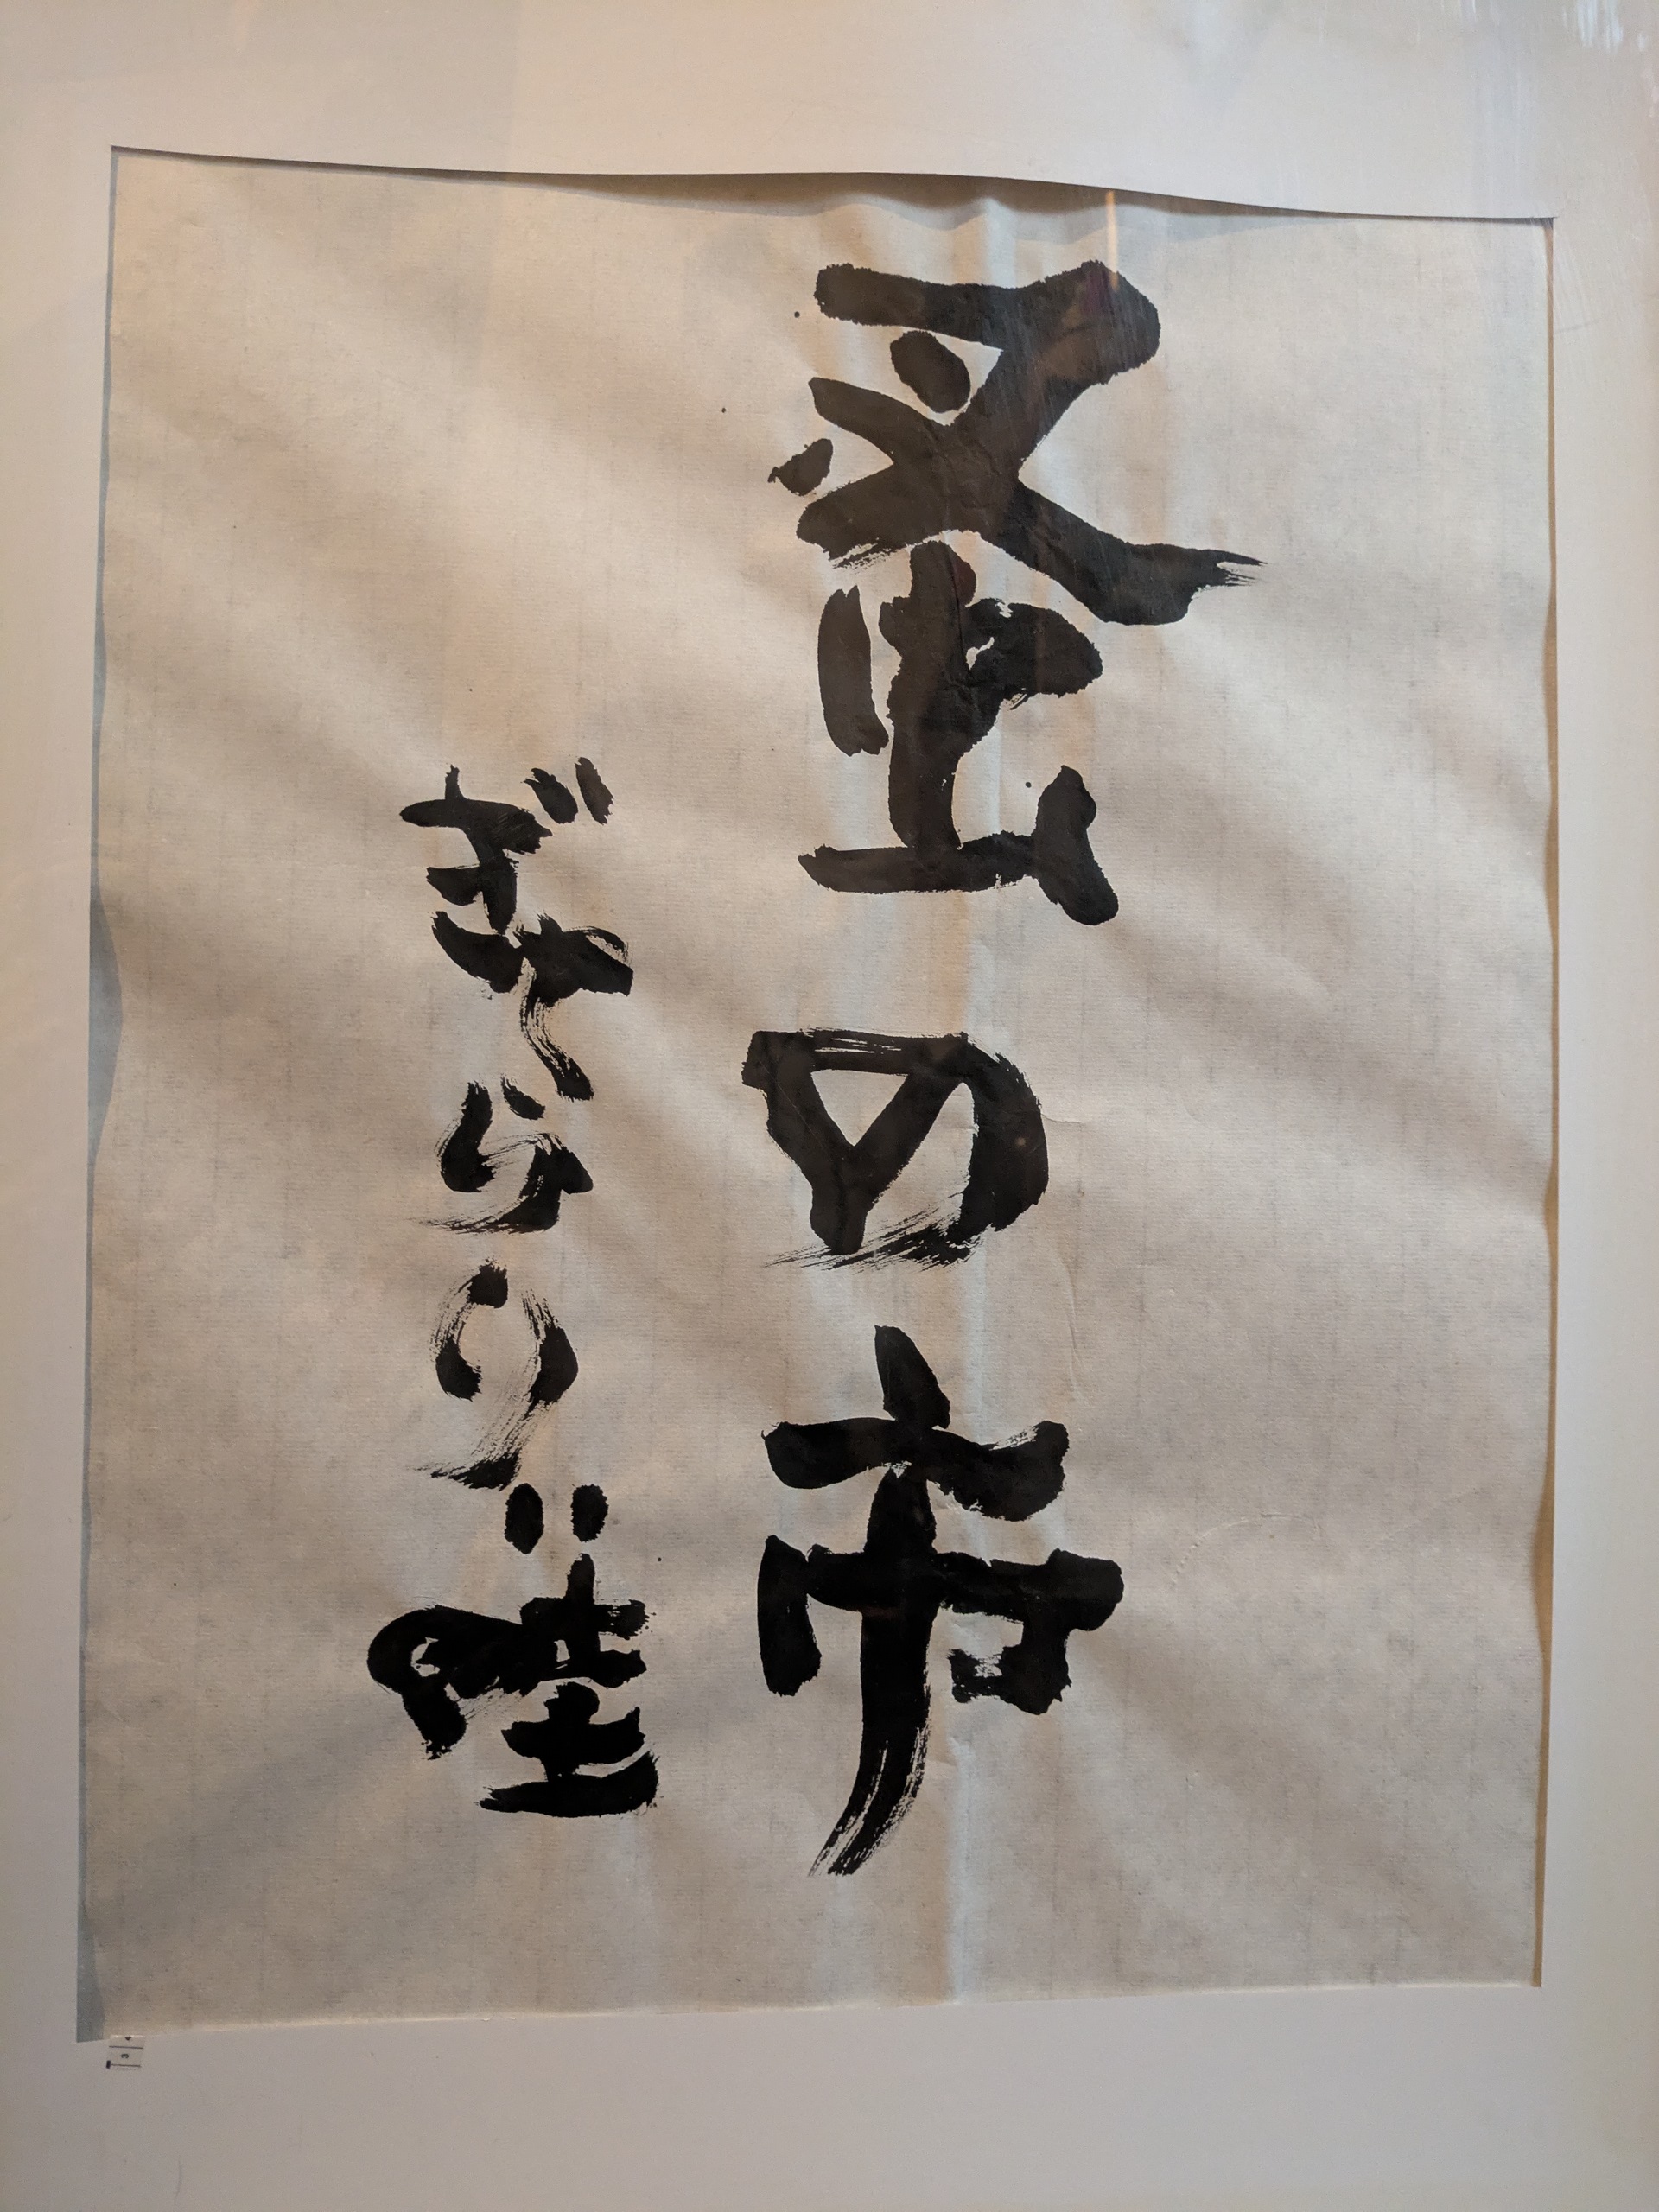 蚤の市
ぎゃらりい哇